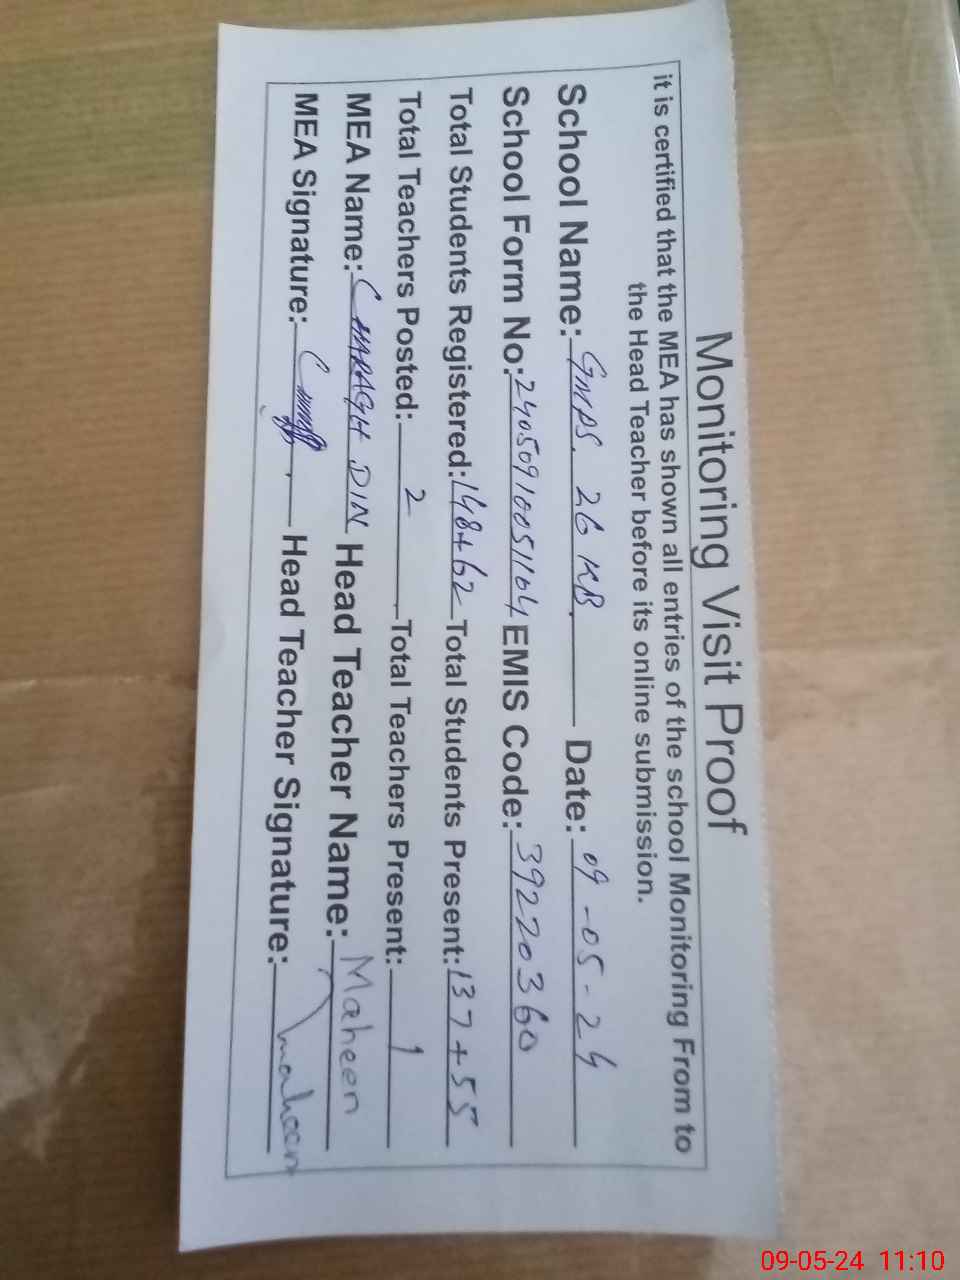 Monitoring Visit Proof
it is certified that the MEA has shown all entries of the school Monitoring From to
the Head Teacher before its online submission.
School Name: GMPS. 26 KB. Date: 09-05-24
School Form No: 24050910051164 EMIS Code: 39220360
Total Students Registered: 148+62 Total Students Present: 137+55
Total Teachers Posted: 2 Total Teachers Present: 1
MEA Name: CHARAGH DIN Head Teacher Name: Maheen
MEA Signature: Head Teacher Signature: maheen
09-05-24 11:10